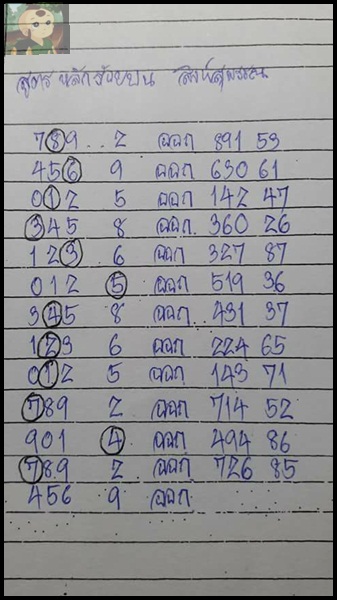 สูตร หลักร้อยบน สิงห์สุพรรณ
789 2 ออก 891 53
456 9 ออก 630 61
012 5 ออก 142 47
345 8 ออก 360 26
123 6 ออก 327 87
012 5 ออก 519 36
345 8 ออก 431 37
123 6 ออก 224 65
012 5 ออก 143 71
789 2 ออก 714 52
901 4 ออก 494 86
789 2 ออก 726 85
456 9 ออก